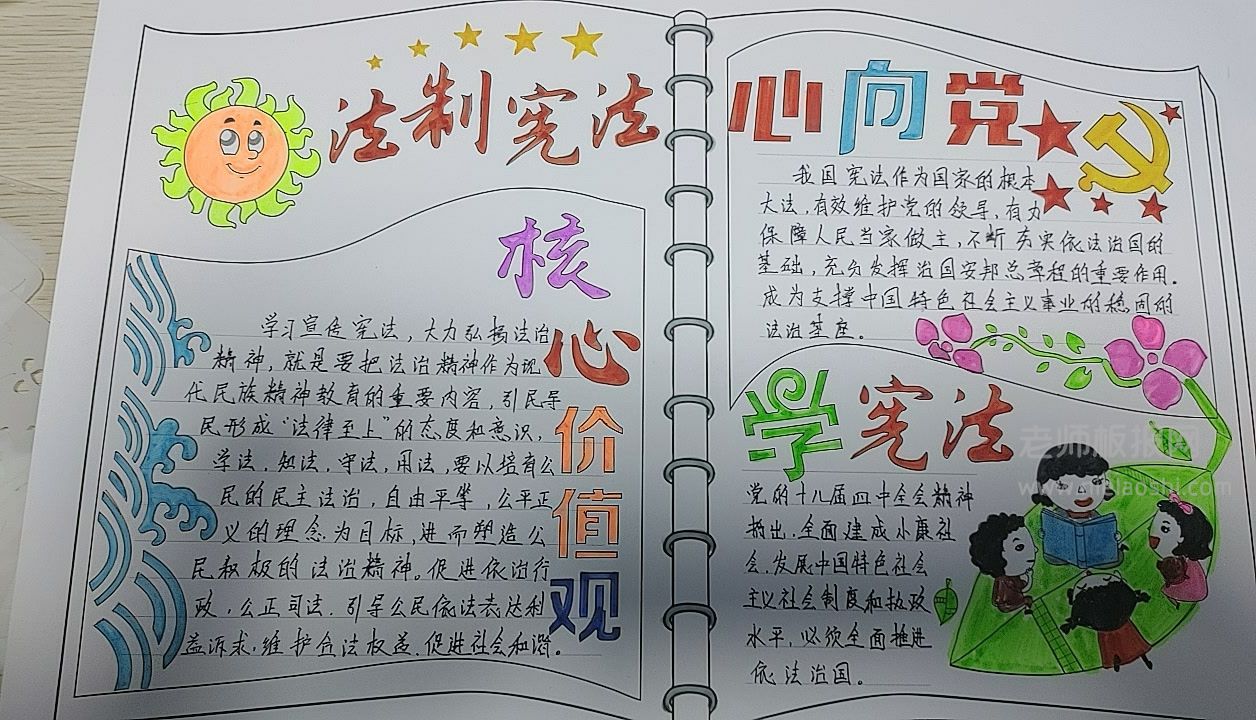 法制宪法
核心价值观
学习宣传宪法，大力弘扬法治
精神，就是要把法治精神作为现
代民族精神教育的重要内容，引民导
民形成“法律至上”的态度和意识，
学法，知法，守法，用法，要以培育公
民的民主法治，自由平等，公平正
义的理念为目标，进而塑造公
民积极的法治精神。促进依治行
政，公正司法．引导公民依法表达利
益诉求，维护合法权益．促进社会和谐。
心向党
我国宪法作为国家的根本
大法，有效维护党的领导，有力
保障人民当家做主，不断夯实依法治国的
基础，充分发挥治国安邦总章程的重要作用．
成为支撑中国特色社会主义事业的稳固的
法治基座。
学宪法
党的十八届四中全会精神
指出．全面建成小康社
会．发展中国特色社会
主义社会制度和执政
水平，必须全面推进
依法治国。
老师板报网